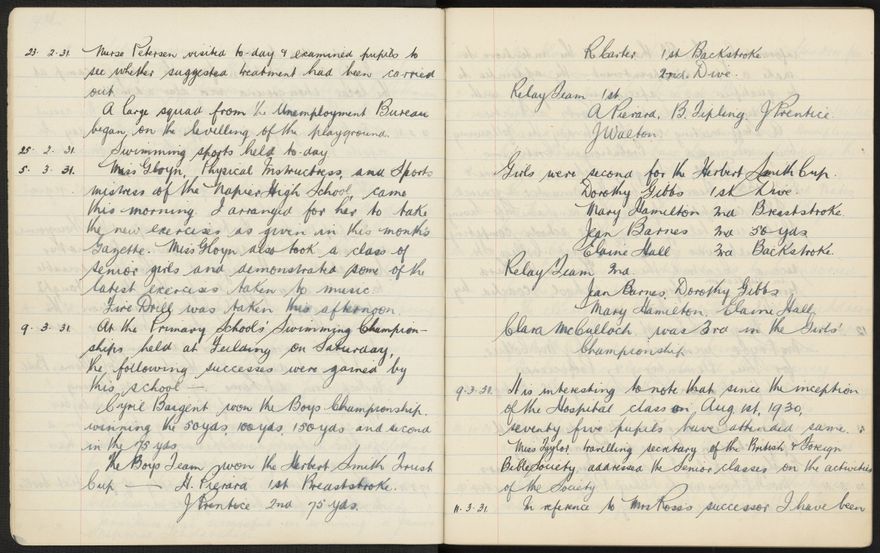 23. 2. 31. Nurse Petersen visited to-day & examined pupils to
see whether suggested treatment had been carried
out.
A large squad from the Unemployment Bureau
began, on the levelling of the playground.
25. 2. 31. Swimming sports held to-day
5. 3. 31. Miss Gloyn, Physical Instructress, and Sports
mistress of the Napier High School, came
this morning. I arranged for her to take
the new exercises as given in this month's
Gazette. Miss Gloyn also took a class of
senior girls and demonstrated some of the
latest exercises taken to music.
Fire Drill was taken this afternoon.
9. 3. 31. At the Primary Schools' Swimming Champion-
ships held at Feilding on Saturday,
the following successes were gained by
this school —
Cyril Bargent won the Boys Championship.
winning the 50 yds, 100 yds, 150 yds and second
in the 75 yds
The Boys Team won the Herbert Smith Trust
Cup — H. Pierard 1st Breaststroke.
J Prentice 2nd 75 yds.
R Carter 1st Backstroke
2nd Dive.
Relay Team 1st
A Pierard, B. Tipling, J Prentice
J Walton
Girls were second for the Herbert Smith Cup.
Dorothy Gibbs 1st Dive.
Mary Hamilton 2nd Breaststroke.
Jean Barnes 2nd 50 yds
Elaine Hall 2nd Backstroke.
Relay Team 2nd.
Jean Barnes, Dorothy Gibbs
Mary Hamilton, Elaine Hall
Clara McCulloch was 3rd in the Girls'
Championship.
9. 3. 31. It is interesting to note that since the inception
of the Hospital class on Aug 1st, 1930,
seventy five pupils have attended same.
Miss Taylor travelling secretary of the British & Foreign
Bible Society addressed the Senior classes on the activities
of the Society
11. 3. 31. In reference to Mrs Ross's successor I have been